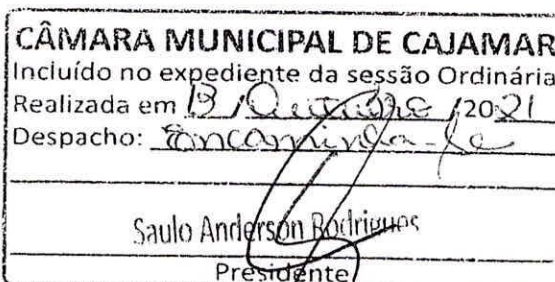 CÂMARA MUNICIPAL DE CAJAMAR
Incluído no expediente da sessão Ordinária
Realizada em 13 / Outubro / 2021
Despacho: Encaminha-se
Saulo Anderson Rodrigues
Presidente